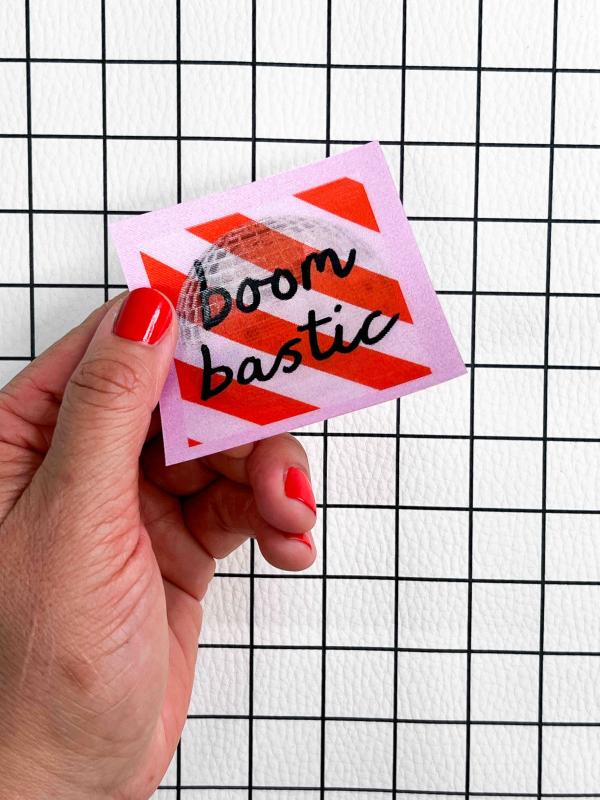 boom
bastic